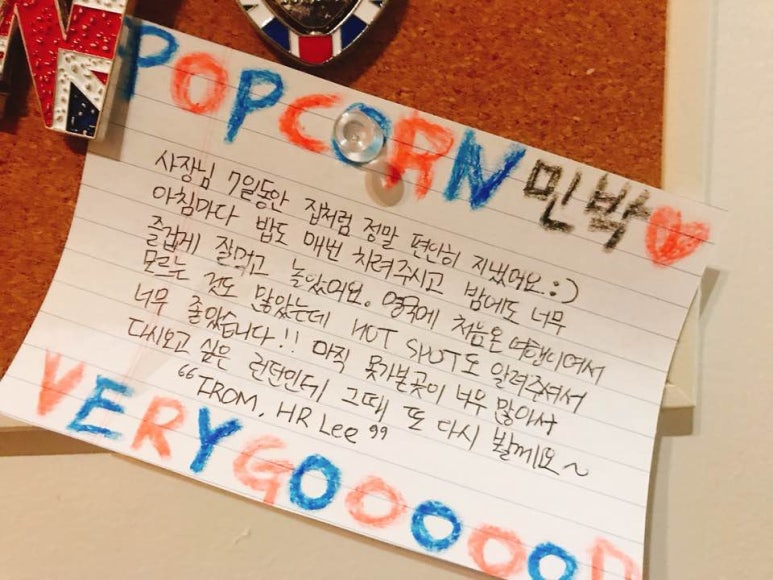 POPCORN 민박
사장님 7일동안 집처럼 정말 편안히 지냈어요 :)
아침마다 밥도 매번 차려주시고 밤에도 너무
즐겁게 잘먹고 놀았어요. 영국에 처음온 여행이여서
모르는 것도 많았는데 HOT SPOT도 알려주셔서
너무 좋았습니다!! 아직 못가본곳이 너무 많아서
다시오고 싶은 런던인데 그때 또 다시 뵐께요~
"FROM, HR Lee"
VERY GOOOOOD
N